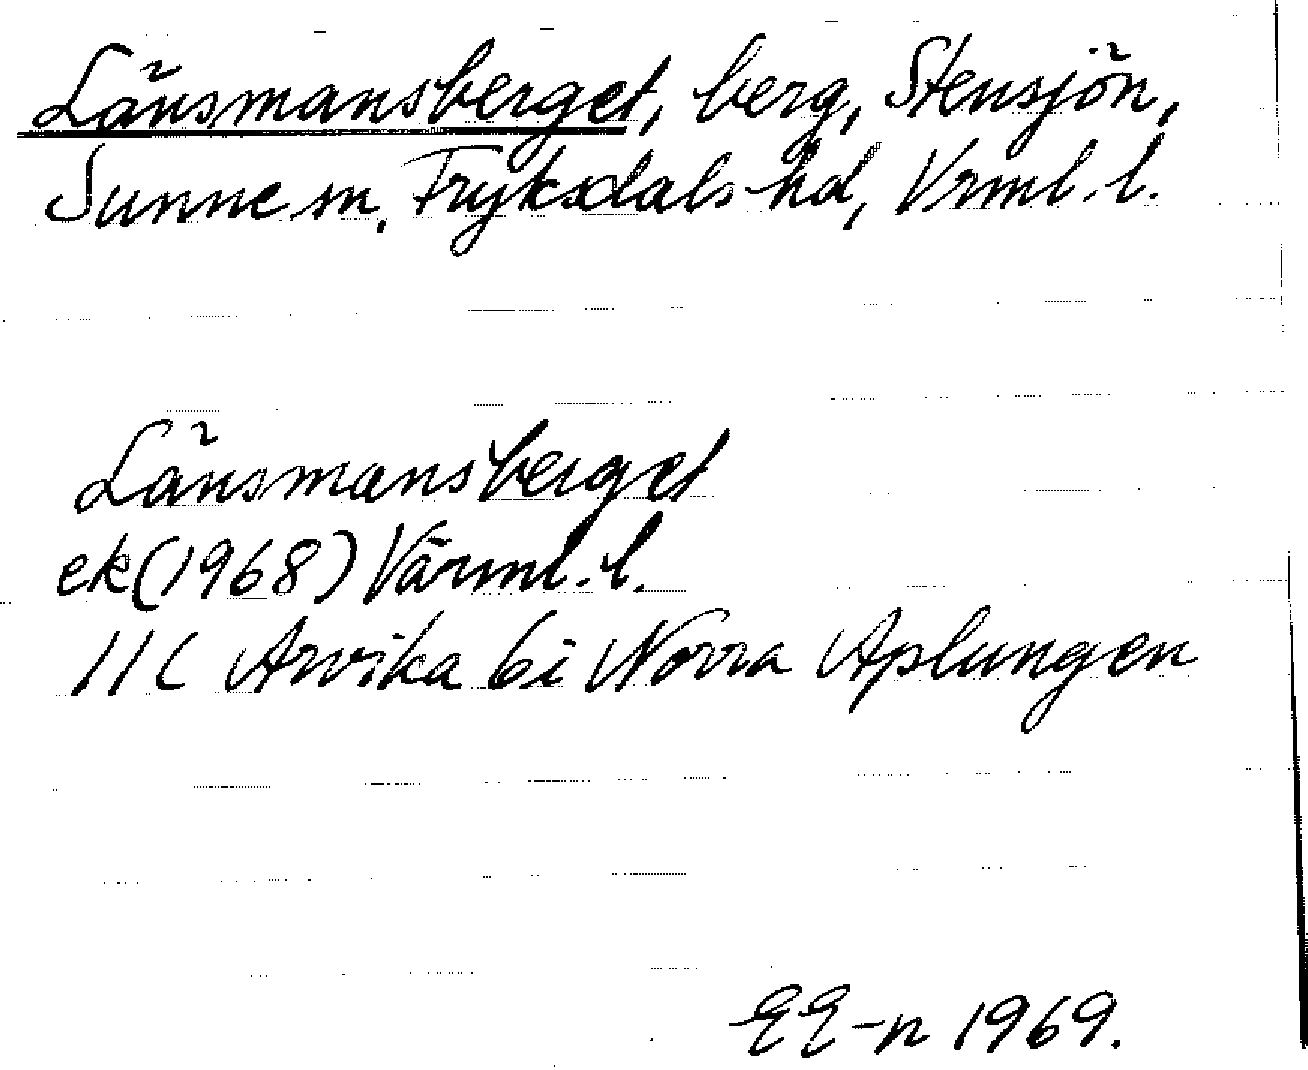 Länsmansberget, berg, Stensjön,
Sunne sn, Fryksdals hd, Vrml. l.
Länsmansberget
ek (1968) Värml. l.
11 C Arvika bi Norra Aplungen
EE-n 1969.